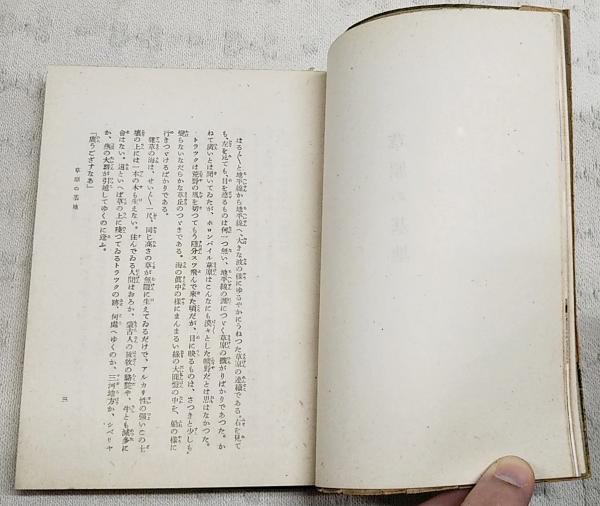 はる〲と地平線から地平線へ、大きな波の樣にゆるやかにうねつた草原の連續である。右を見て
も、左を見ても、目を遮るものは何一つ無い、地平線の涯につゞく草原の擴がりばかりであつた。か
ねて廣いとは聞いてゐたが、ホロンバイル草原はこんなにも漠々とした曠野だとは思はなかつた。
トラツクは荒野の風を切つてもう隨分スツ飛んで來た頃だが、目に映るものは、さつきと少しも
變らないなだらかな草丘のつゞきである。海の眞中の樣にまんまるい緣の大圓盤の中を、船の樣に
行きつゞけるばかりである。
雜草の海は、せい〲一尺、同じ高さの草が無限に生えてゐるだけで、アルカリ性の强いこの土
壤の上には一本の木も生えない。住んでゐる人間はおろか、蒙古人の放牧の駱駝や、牛とも滅多に
會はない。道といへば草の上に殘つてゐるトラツクの跡、何處へゆくのか、三河地方か、シベリヤ
か、燕の大群が引越してゆくのに逢ふ。
「廣うござすなあ」
草原の基地
三